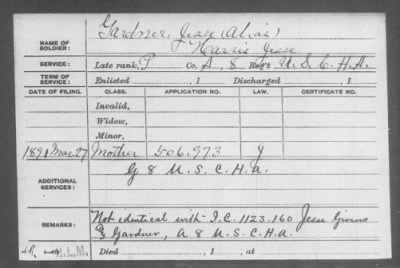 NAME OF SOLDIER: Gardner, Jesse (Alias)
Harris Jesse
SERVICE: Late rank, P Co. A, 8 Reg't U. S. C. H. A.
TERM OF SERVICE: Enlisted , 1 Discharged , 1
DATE OF FILING. CLASS. APPLICATION NO. LAW. CERTIFICATE NO.
Invalid,
Widow,
Minor,
1891 Mar. 27 Mother 506.973 Y
ADDITIONAL SERVICES: G 8 U. S. C. H. a.
REMARKS: Not identical with I. C. 1123.160 Jesse Givens
Gardner, A 8 U. S. C. H. a.
Died , 1 , at